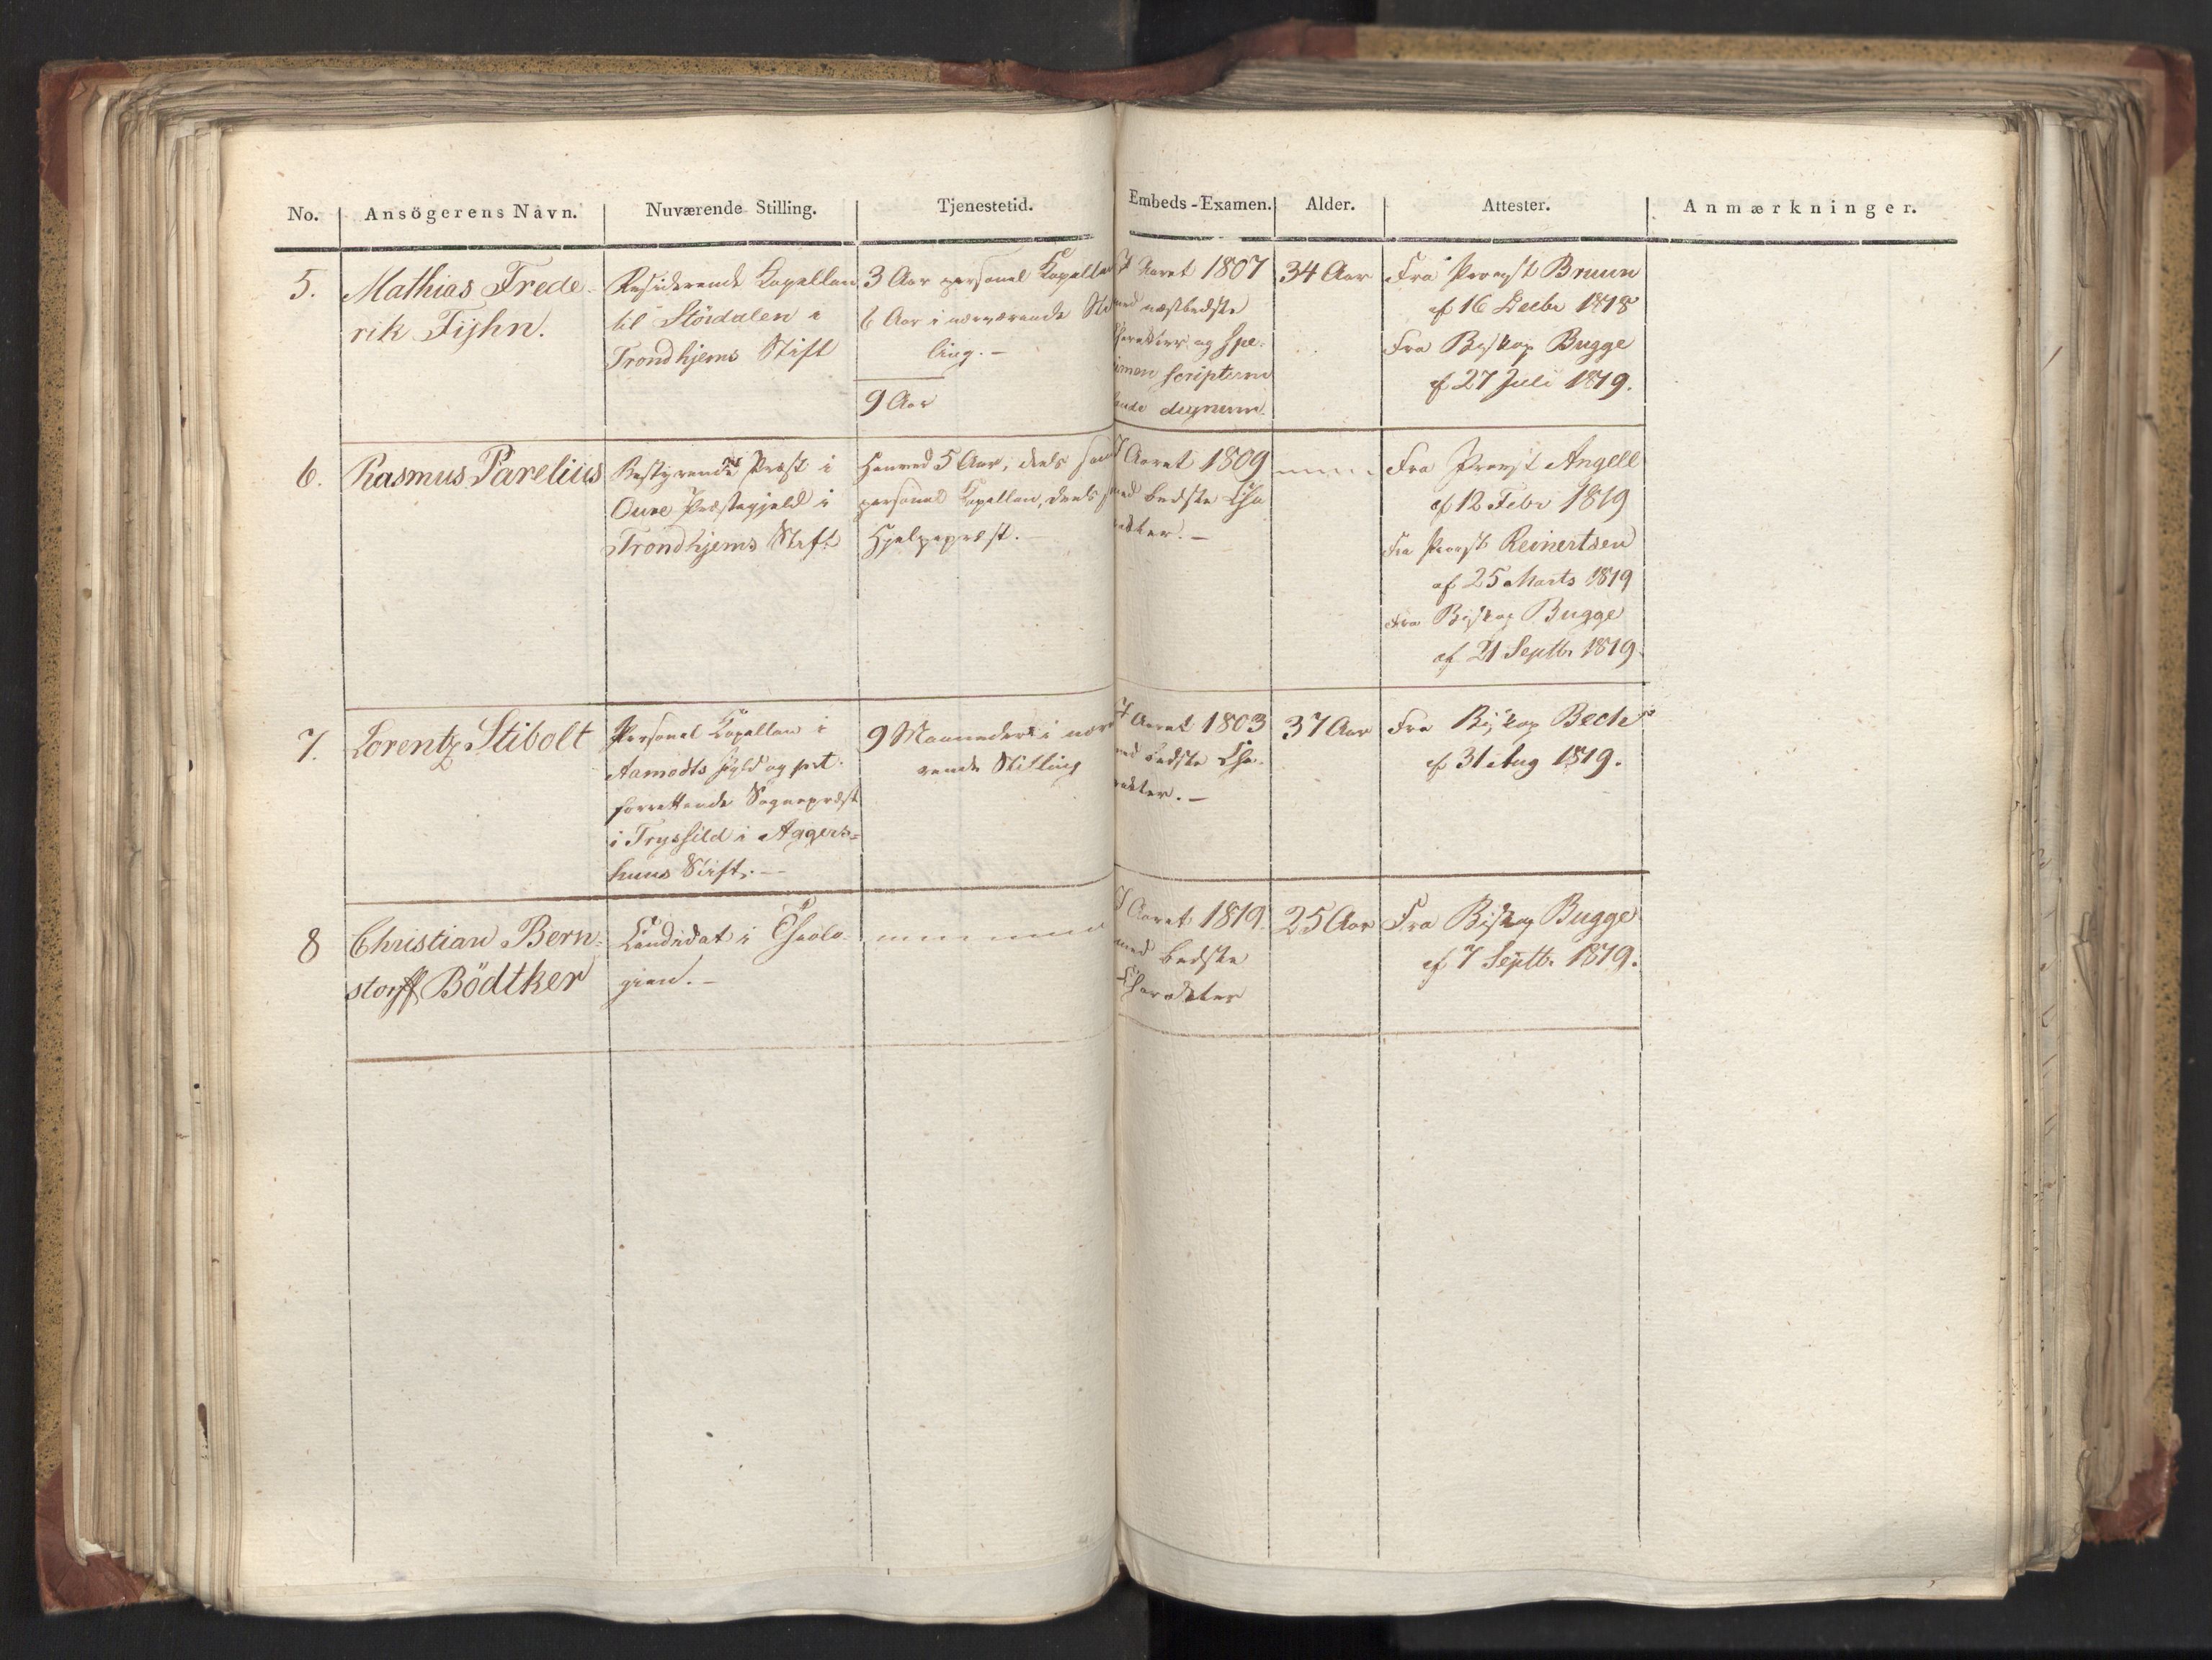 No. Ansögerens Navn. Nuværende Stilling. Tjenestetid. Embeds-Examen. Alder. Attester. Anmærkninger.
5.
Mathias Frede-
rik Fijhn.
Residerende Kapellan
til Stördalen i
Trondhjems Stift
3 Aar personel Kapellan
6 Aar i nærværende Stil
ling. —
9 Aar
I Aaret 1807
med næstbedste
Charakter og Spe-
cimen scriptum
laude dignum.
34 Aar
Fra Provst Bruun
af 16 Decbr 1818
Fra Biskop Bugge
af 27 Juli 1819.
6.
Rasmus Parelius
Bestyrende Præst i
Oure Præstegjeld i
Trondhjems Stift
Henved 5 Aar, deels som
personel Kapellan, deels s
Hjelpepræst. —
I Aaret 1809
med bedste Cha
rakter. —
Fra Provst Angell
af 12 Febr 1819
Fra Provst Reinertsen
af 25 Marts 1819
Fra Biskop Bugge
af 21 Septbr 1819.
7.
Lorentz Stibolt
Personel Kapellan i
Aamodts Gjeld og pt.
forrettende Sognepræst
i Tryssild i Aggers-
huus Stift. —
9 Maaneder i nær
rende Stilling
I Aaret 1803
med bedste Cha-
rakter. —
37 Aar
Fra Biskop Bech
af 31 Aug 1819.
8
Christian Bern-
storff Bödtker
Candidat i Theolo-
gien. —
I Aaret 1819
med bedste
Charakter
25 Aar
Fra Biskop Bugge
af 7 Septbr 1819.